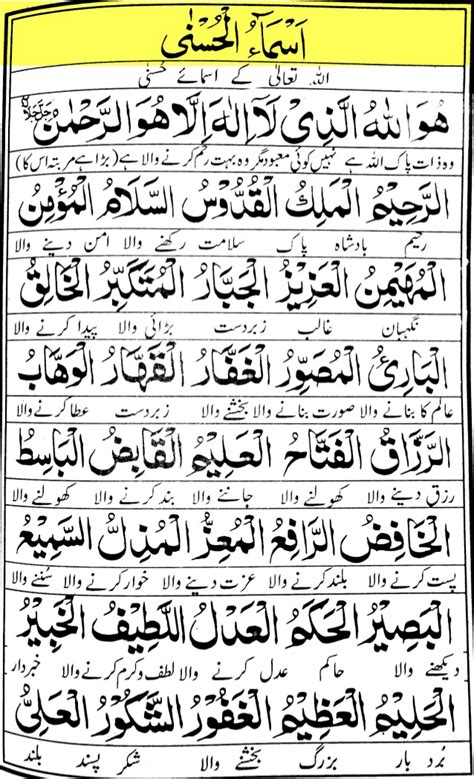 اَسْمَاءُ الْحُسْنٰى
اللہ تعالیٰ کے اسمائے حسنٰی
هُوَ اللهُ الَّذِىْ لَآ اِلٰهَ اِلَّا هُوَ الرَّحْمٰنُ جَلَّ جَلَالُهٗ
وہ ذات پاک اللہ ہے نہیں کوئی معبود مگر وہ بہت رحم کرنے والا ہے (بڑا ہے مرتبہ اس کا)
الرَّحِيْمُ الْمَلِكُ الْقُدُّوْسُ السَّلَامُ الْمُؤْمِنُ
رحیم بادشاہ پاک سلامت رکھنے والا امن دینے والا
الْمُهَيْمِنُ الْعَزِيْزُ الْجَبَّارُ الْمُتَكَبِّرُ الْخَالِقُ
نگہبان غالب زبردست بڑائی والا پیدا کرنے والا
الْبَارِئُ الْمُصَوِّرُ الْغَفَّارُ الْقَهَّارُ الْوَهَّابُ
عالم کا بنانے والا صورت بنانے والا بخشنے والا زبردست عطا کرنے والا
الرَّزَّاقُ الْفَتَّاحُ الْعَلِيْمُ الْقَابِضُ الْبَاسِطُ
رزق دینے والا کھولنے والا جاننے والا بند کرنے والا کھولنے والا
الْخَافِضُ الرَّافِعُ الْمُعِزُّ الْمُذِلُّ السَّمِيْعُ
پست کرنے والا بلند کرنے والا عزت دینے والا خوار کرنے والا سننے والا
الْبَصِيْرُ الْحَكَمُ الْعَدْلُ اللَّطِيْفُ الْخَبِيْرُ
دیکھنے والا حاکم عدل کرنے والا لطف و کرم کرنے والا خبردار
الْحَلِيْمُ الْعَظِيْمُ الْغَفُوْرُ الشَّكُوْرُ الْعَلِىُّ
بُرد بار بزرگ بخشنے والا شکر پسند بلند